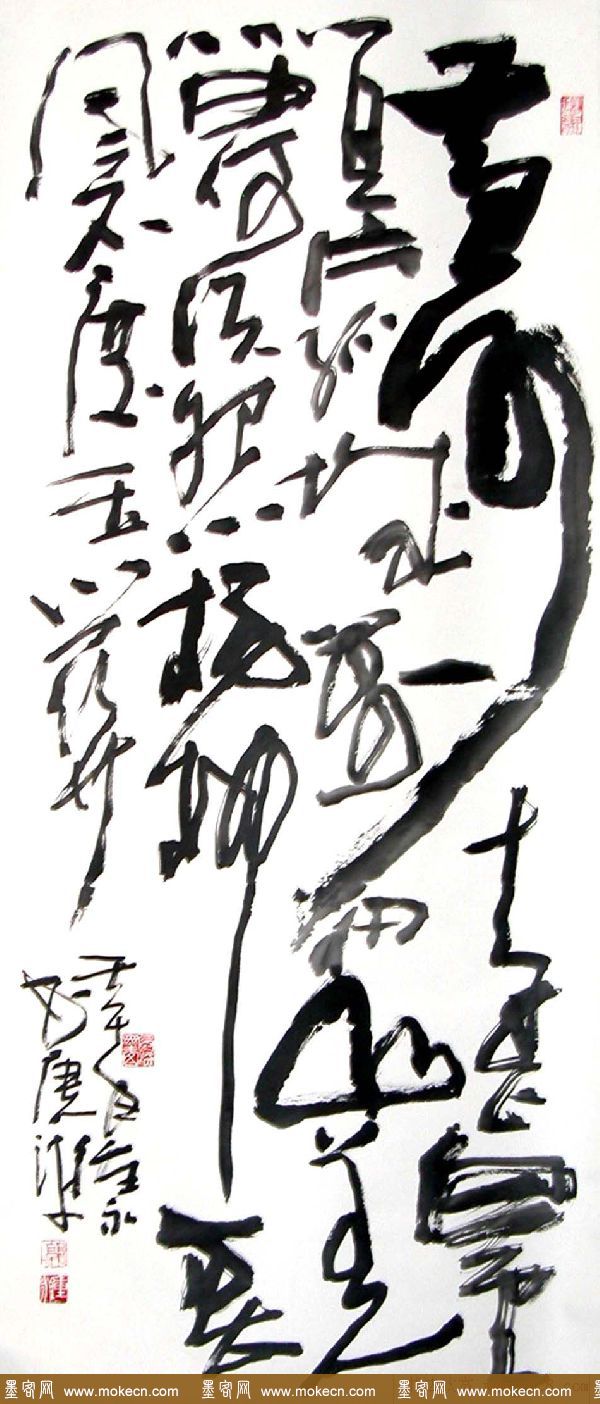 黄河远上白云
间一片孤城萬仞山羌
笛何须怨杨柳春
风不度玉门关
墨客网 www.mokecn.com 墨客网 www.mokecn.com 墨客网 www.mokecn.com